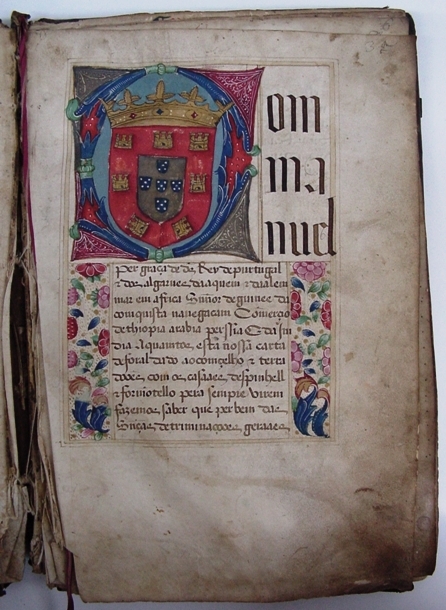 Dom
ma
nuel
per graça de ds Rey de purtugal
z dos algarues daaquem z daalem
mar em africa Snñor de guinee z da
conquista navegaçam Comercio
dethiopia arabia perssia E da in
dia A quamtos esta nossa carta
de foral dado ao comçelho z terra
dooes com os casaaes despinhell
z fornotello pera sempre virem
fazemos saber que per bem das
Snças detriminaçooes geraaes